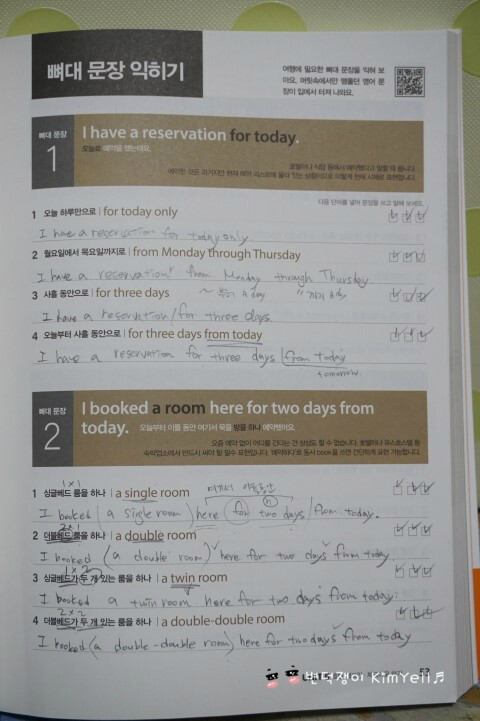 뼈대 문장 익히기
여행에 필요한 뼈대 문장을 익혀 보
아요. 머릿속에서만 맴돌던 영어 문
장이 입에서 터져 나와요.
뼈대 문장
1
I have a reservation for today.
오늘로 예약을 했는데요.
다음 단어를 넣어 문장을 쓰고 말해 보세요.
1 오늘 하루만으로 | for today only
I have a reservation for today only.
2 월요일에서 목요일까지로 | from Monday through Thursday
I have a reservation from Monday through Thursday
3 사흘 동안으로 | for three days
~ 부터 A day
까지 B day
I have a reservation / for three days.
4 오늘부터 사흘 동안으로 | for three days from today
I have a reservation for three days from today
tomorrow.
뼈대 문장
2
I booked a room here for two days from
today. 오늘부터 이틀 동안 여기서 묵을 방을 하나 예약했어요.
1×1
여기서 이틀동안
1 싱글베드 룸을 하나 | a single room
I booked (a single room) here for two days / from today.
2×1
2 더블베드 룸을 하나 | a double room
I booked (a double room) here for two days from today
1×2
3 싱글베드가 두 개 있는 룸을 하나 | a twin room
I booked a twin room here for two days from today.
2×2
4 더블베드가 두 개 있는 룸을 하나 | a double-double room
I booked (a double-double room) here for two days from today
변덕쟁이 KimYeli♬
53